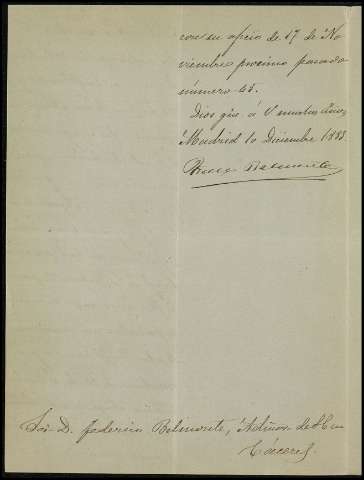 con su oficio de 17 de No
viembre proximo pasado
número 45.
Dios gũe á V muchos años
Madrid 10 Diciembre 1883.
Belmonte
Sor. D. Federico Belmonte, Admor. de
Cáceres.